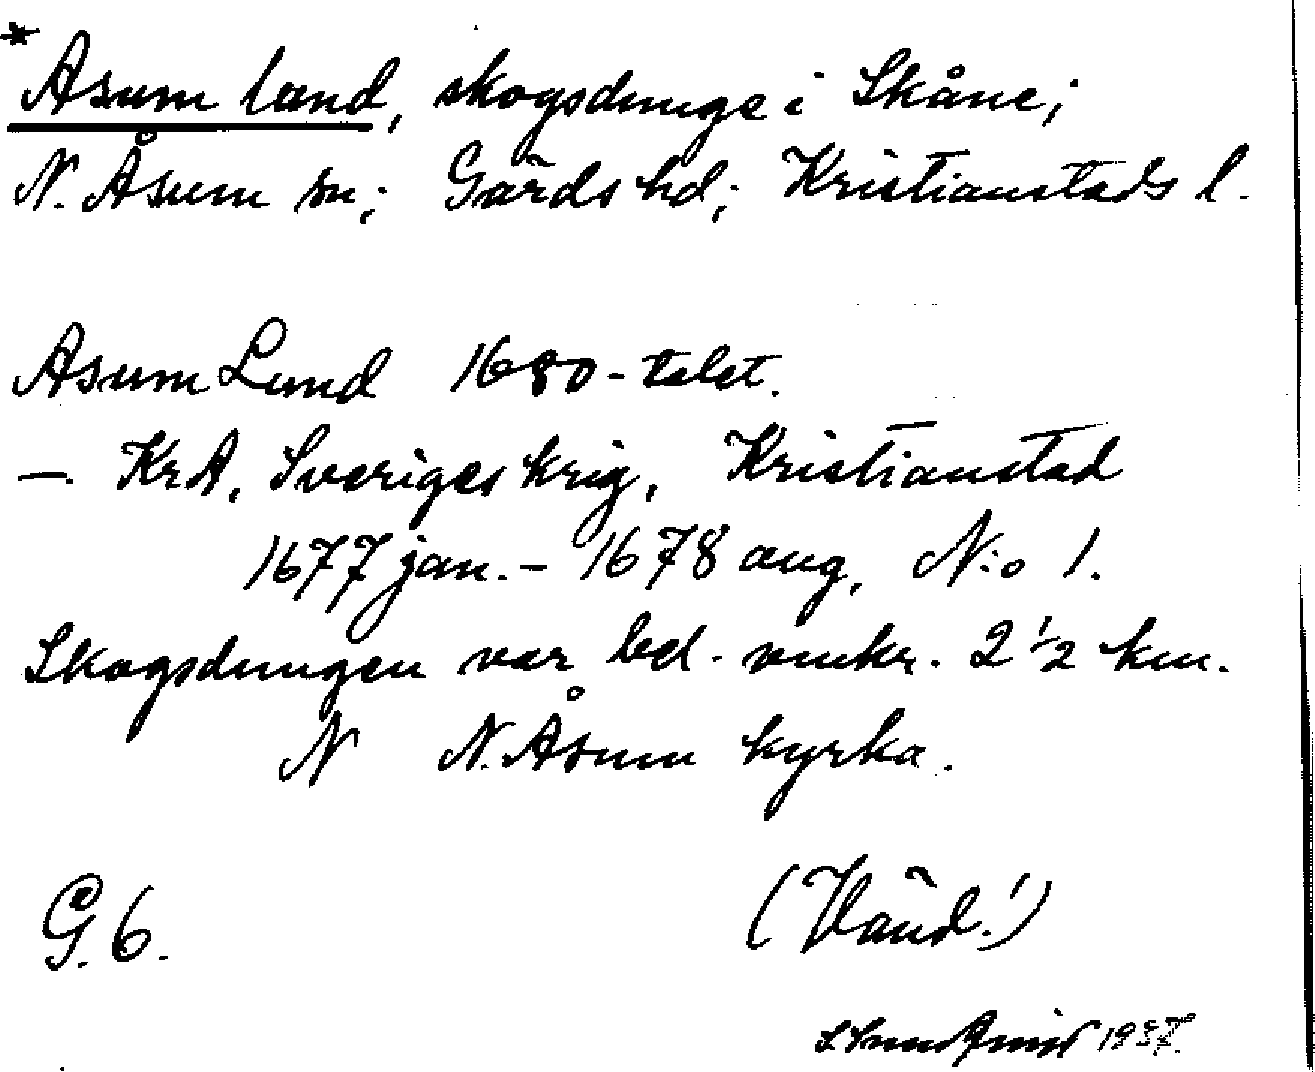 *Asum land, skogsdunge i Skåne;
N. Åsum sn; Gärds hd; Kristianstads l.
Asum Lund 1680-talet.
— KrA, Sveriges krig, Kristianstad
1677 jan. - 1678 aug, N:o 1.
Skogsdungen var bel. omkr. 2 1/2 km.
N N. Åsum kyrka.
G. 6.
(Vänd!)
1937.